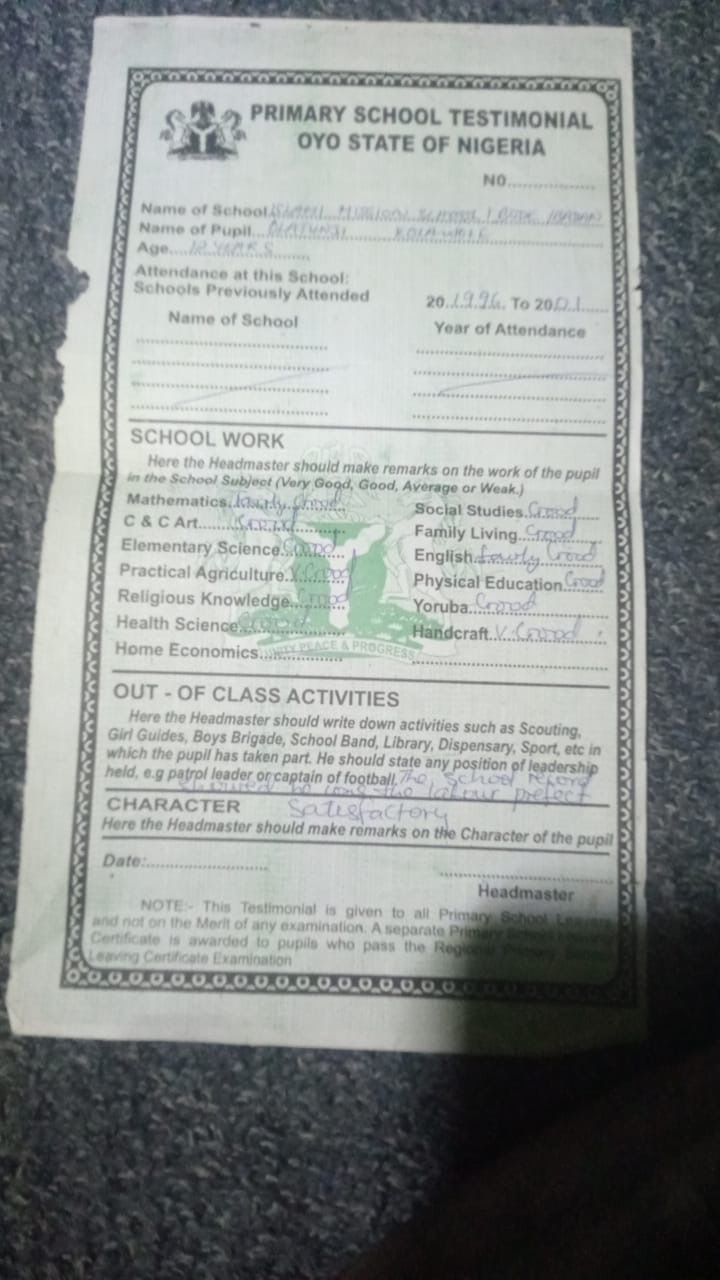 PRIMARY SCHOOL TESTIMONIAL
OYO STATE OF NIGERIA
NO..................
Name of School. MISSION SCHOOL
Name of Pupil...
Age...12 YEARS.......
Attendance at this School:
Schools Previously Attended
20..1996. To 20.01.....
Name of School
Year of Attendance
SCHOOL WORK
Here the Headmaster should make remarks on the work of the pupil
in the School Subject (Very Good, Good, Average or Weak.)
Mathematics..fairly Good
Social Studies.Good....
C & C Art......Good
Family Living..Good
Elementary Science.Good...
English.fairly Good
Practical Agriculture.V.Good
Physical Education.Good
Religious Knowledge..Good
Yoruba..Good
Health Science.Good
Handcraft.V.Good
Home Economics..................
UNITY PEACE & PROGRESS
OUT - OF CLASS ACTIVITIES
Here the Headmaster should write down activities such as Scouting,
Girl Guides, Boys Brigade, School Band, Library, Dispensary, Sport, etc in
which the pupil has taken part. He should state any position of leadership
held, e.g patrol leader or captain of football. The school record
showed he was the labour prefect
CHARACTER Satisfactory
Here the Headmaster should make remarks on the Character of the pupil
Date:......................
Headmaster
NOTE:- This Testimonial is given to all Primary School Leavers
and not on the Merit of any examination. A separate Primary School Leaving
Certificate is awarded to pupils who pass the Regional Primary School
Leaving Certificate Examination